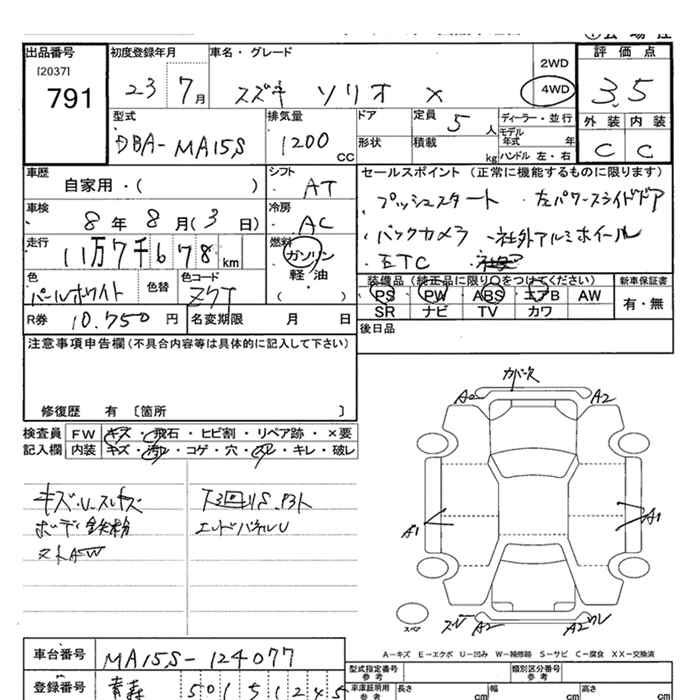 出品番号 初度登録年月 車名・グレード 評価点
[2037] 2WD
791 23 7月 スズキ ソリオ X 4WD 3.5
型式 排気量 ドア 定員 ディーラー・並行 外装 内装
DBA-MA15S 1200 CC 5人 モデル年式 年
形状 積載 kg ハンドル 左・右 C C
車歴 シフト セールスポイント (正常に機能するものに限ります)
自家用・( ) AT ・プッシュスタート ・左パワースライドドア
車検 冷房
8年8月(3日) AC ・バックカメラ ・社外アルミホイール
走行 燃料
11万7千678km ガソリン ・ETC
軽油
色 色替 色コード ( ) 装備品 (純正品に限り○をつけてください) 新車保証書
パールホワイト ZVT PS PW ABS エアB AW 有・無
R券 10.750円 名変期限 月 日 SR ナビ TV カワ
注意事項申告欄(不具合内容等は具体的に記入して下さい) 後日品
修復歴 有 〔箇所 〕
検査員 FW キズ・飛石・ヒビ割・リペア跡・×要
記入欄 内装 キズ・汚れ・コゲ・穴・・キレ・破レ
カバーキズ
A2 A2
キズ・U・スレキズ 下回りS
ボディ鉄粉 エンドパネルU
A1 A1
スペア A2 A2
A-キズ E-エクボ U-凹み W-補修跡 S-サビ C-腐食 XX-交換済
車台番号 MA15S-124077
型式指定番号 参考 類別区分番号 参考
登録番号 青森 501 5 1245
車庫証明用 参考 長さ cm 幅 cm 高さ cm